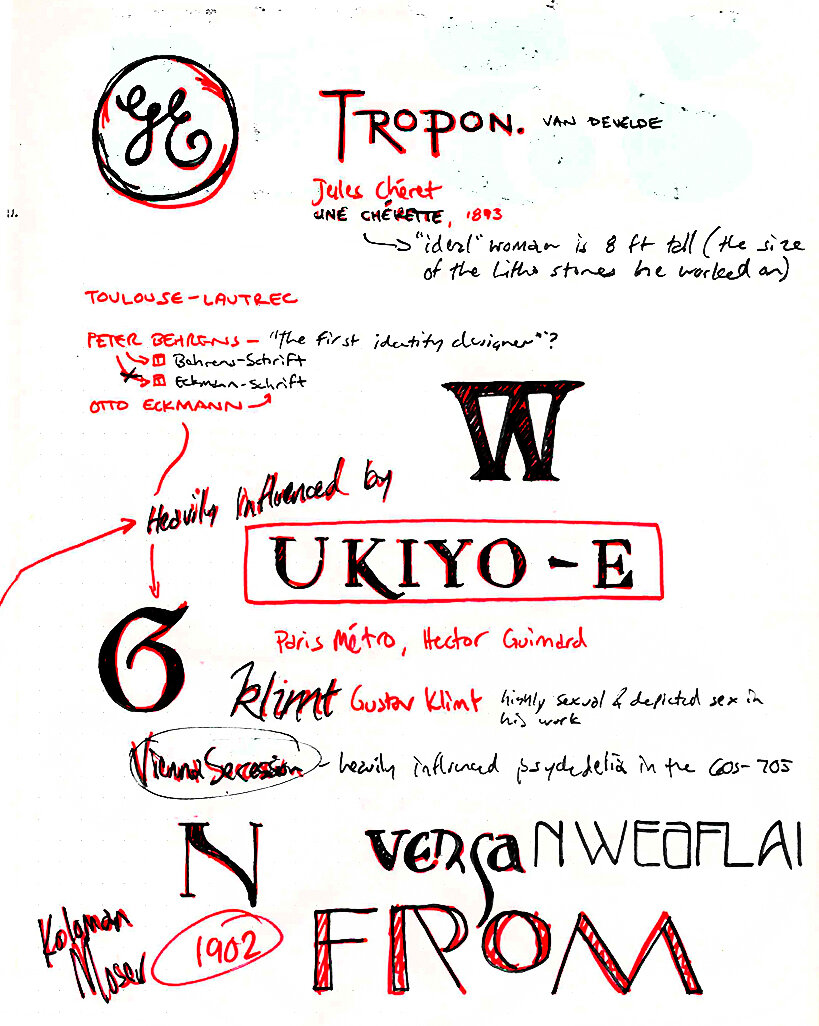 GE
TROPON. VAN DEVELDE
Jules Chéret
UNE CHÉRETTE, 1893
"ideal" woman is 8 ft tall (the size
of the litho stones he worked on)
TOULOUSE-LAUTREC
PETER BEHRENS - "the first identity designer"?
Behrens-Schrift
Eckmann-Schrift
OTTO ECKMANN
W
Heavily Influenced by
UKIYO-E
G
Paris Métro, Hector Guimard
klimt Gustav Klimt highly sexual & depicted sex in
his work
Vienna Secession - heavily influenced psychedelia in the 60s-70s
N VERSA NWEOFLAI
Koloman
Moser
1902
FROM